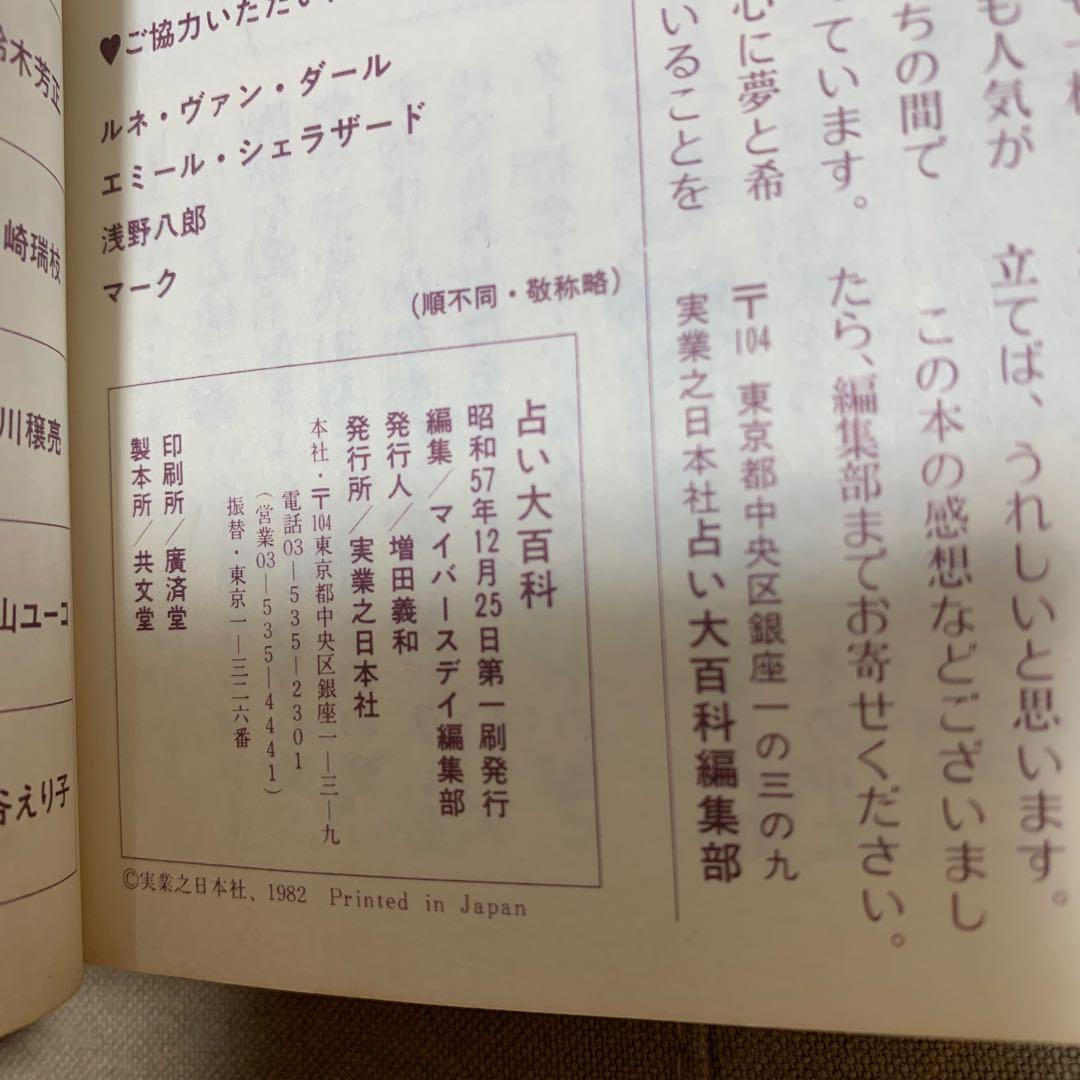 も人気が
ちの間で
ています。
心に夢と希
いることを
立てば、うれしいと思います。
この本の感想などございまし
たら、編集部までお寄せください。
〒104 東京都中央区銀座一の三の九
実業之日本社占い大百科編集部
♥ご協力いただい
ルネ・ヴァン・ダール
エミール・シェラザード
浅野八郎
マーク
(順不同・敬称略)
占い大百科
昭和57年12月25日第一刷発行
編集/マイバースデイ編集部
発行人/増田義和
発行所/実業之日本社
本社・〒104東京都中央区銀座一―三―九
電話03―535―2301
(営業03―535―4441)
振替・東京一―三二六番
印刷所/廣済堂
製本所/共文堂
©実業之日本社、1982 Printed in Japan
木芳正
崎瑞枝
川穣亮
山ユーコ
谷えり子